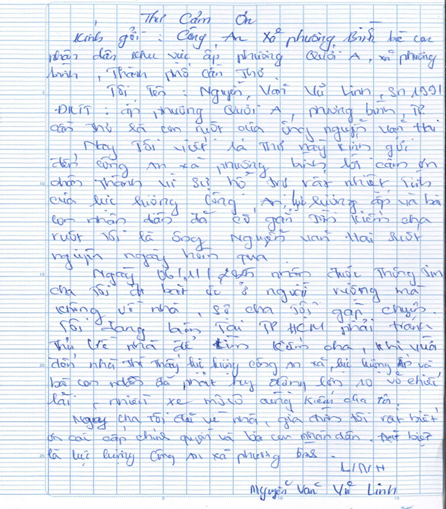 Thư Cảm Ơn
Kính gởi: Công An Xã phương Bình bà con
nhân dân khu vực ấp phương Quới A, xã phương
bình, Thành phố cần Thơ.
Tôi Tên: Nguyễn Văn Vũ Linh, sn 1991
ĐKTT: ấp phương Quới A, phương bình, TP
cần thơ là con ruột của ông nguyễn văn Hai
Nay Tôi viết lá thư này kính gửi
đến công an xã phương bình lời cảm ơn
chân thành vì sự hỗ trợ rất nhiệt tình
của lực lượng Công An, lực lượng ấp và bà
con nhân dân đã cố gắn tìm kiếm cha
ruột tôi là ông Nguyễn văn Hai suốt
ngày hôm qua.
Ngày 06/11/2025 nhận được thông tin
cha tôi đi ở ngoài ruộng mà
không về nhà, sợ cha tôi gặp chuyện
Tôi đang Tại TP HCM phải tranh
thủ về nhà để tìm kiếm cha, khi vừa
đến nhà thì thấy lực lượng công an xã, lực lượng ấp và
bà con nhân dân phát huy động hơn 10 vỏ
lãi, nhiều xe môtô cùng kiếm cha tôi.
Ngay cha tôi đã về nhà, gia đình tôi rất biết
ơn các cấp chính quyền và bà con nhân dân. Đặt biệt
là lực lượng Công an xã phương bình.
LINH
Nguyễn Văn Vũ Linh